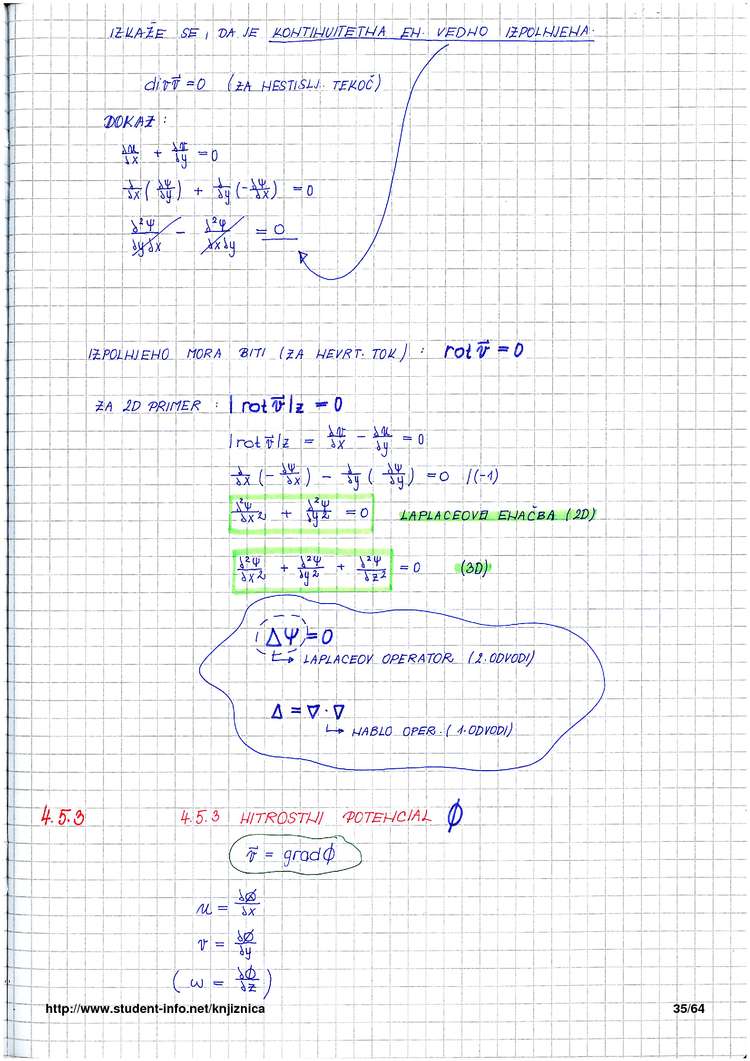 IZKAŽE SE, DA JE KONTINUITETNA EN. VEDNO IZPOLNJENA.
div v⃗ = 0 (ZA NESTISLJ. TEKOČ)
DOKAZ:
∂u/∂x + ∂v/∂y = 0
∂/∂x (∂Ψ/∂y) + ∂/∂y (-∂Ψ/∂x) = 0
∂²Ψ/∂y∂x - ∂²Ψ/∂x∂y = 0
IZPOLNJENO MORA BITI (ZA NEVRT. TOK) : rot v⃗ = 0
ZA 2D PRIMER : |rot v⃗|z = 0
|rot v⃗|z = ∂v/∂x - ∂u/∂y = 0
∂/∂x (-∂Ψ/∂x) - ∂/∂y (∂Ψ/∂y) = 0 /(-1)
∂²Ψ/∂x² + ∂²Ψ/∂y² = 0 LAPLACEOVA ENAČBA (2D)
∂²Ψ/∂x² + ∂²Ψ/∂y² + ∂²Ψ/∂z² = 0 (3D)
ΔΨ = 0
↳ LAPLACEOV OPERATOR (2. ODVODI)
Δ = ∇ · ∇
↳ NABLO OPER. (1. ODVODI)
4.5.3 4.5.3 HITROSTNI POTENCIAL Ø
v⃗ = grad Ø
u = ∂Ø/∂x
v = ∂Ø/∂y
(w = ∂Ø/∂z)
http://www.student-info.net/knjiznica 35/64